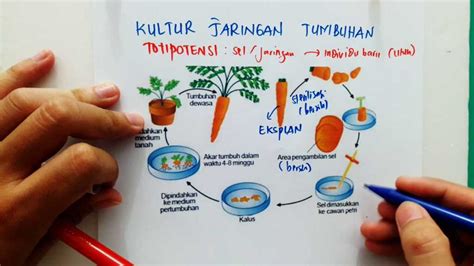 KULTUR JARINGAN TUMBUHAN
TOTIPOTENSI : sel/jaringan → individu baru (utuh)
Tumbuhan
dewasa
Sterilisasi
(bersih)
EKSPLAN
dahkan
medium
tanah
Akar tumbuh dalam
waktu 4-8 minggu
Area pengambilan sel
(bersih)
Dipindahkan
ke medium
pertumbuhan
Kalus
Sel dimasukkan
ke cawan petri